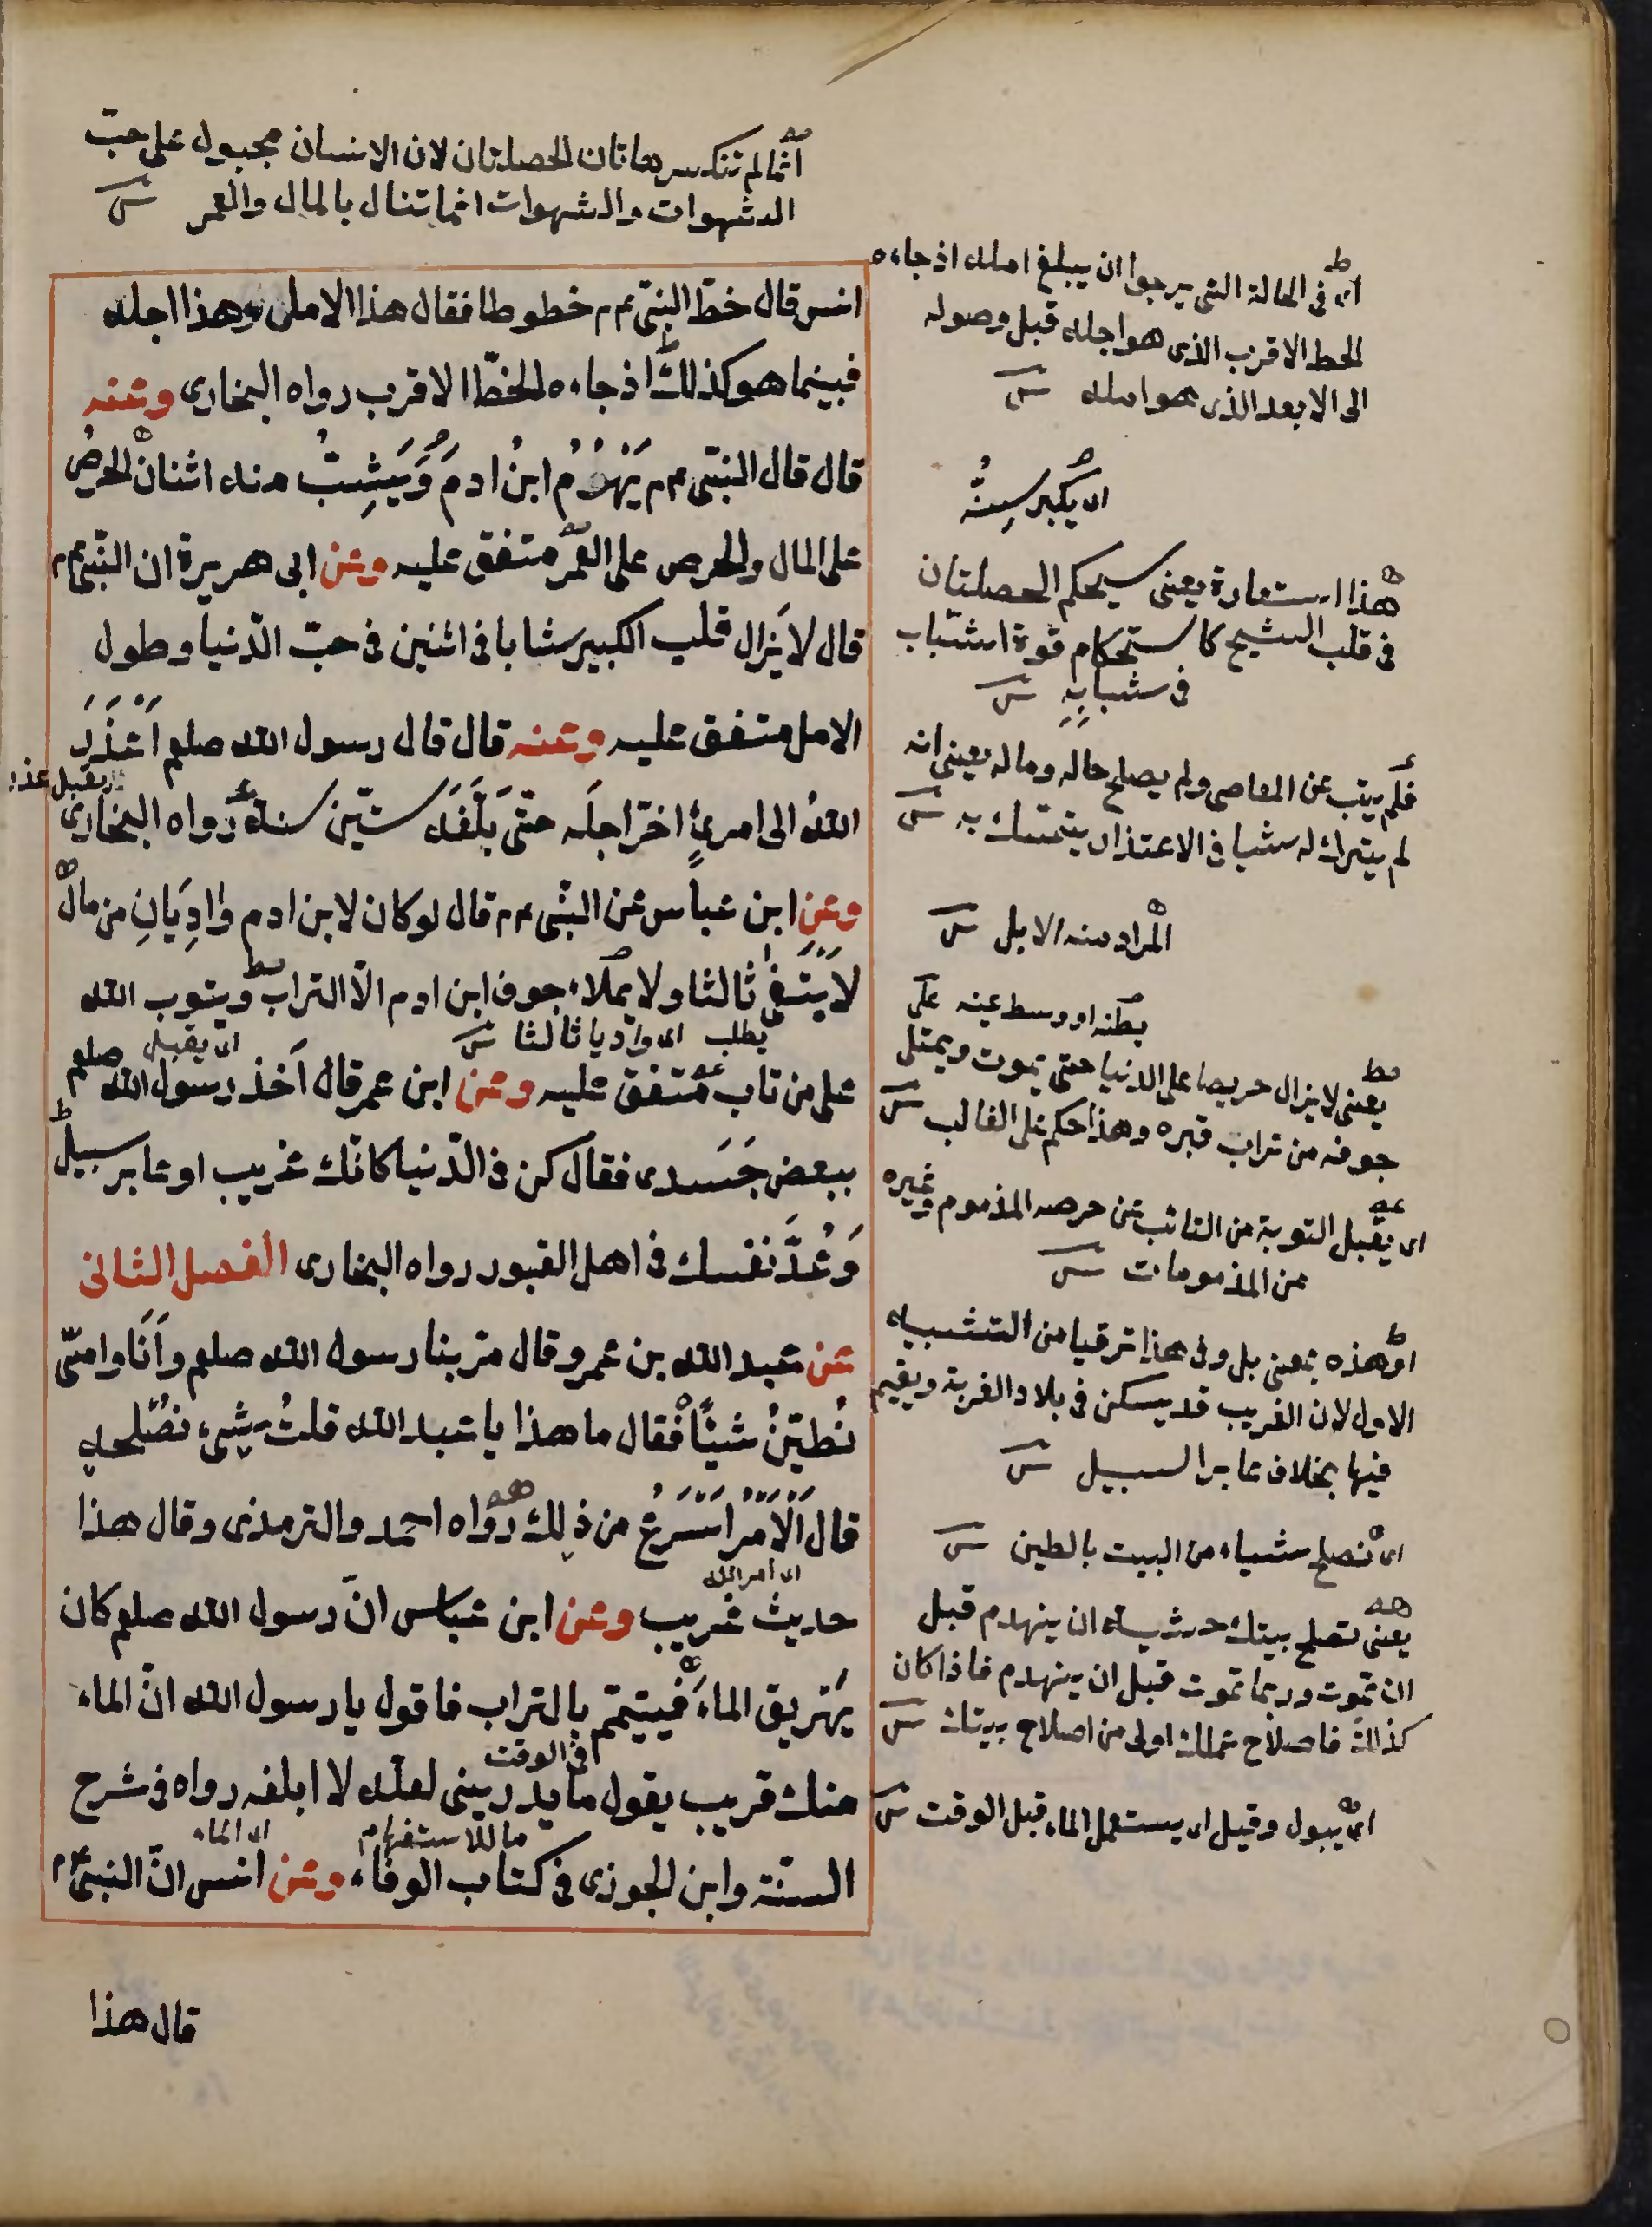 انما لم تنكسر هاتان الخصلتان لان الانسان مجبول على حبّ
الشهوات والشهوات انما تنال بالمال والعمر
انس قال خطّ النبىّ عم خطوطا فقال هذا الامل وهذا اجله
فبينما هو كذلك اذ جاءه الخطّ الاقرب رواه البخارى وعنه
قال قال النبىّ عم يَهْرُمُ ابنُ ادمَ وَيَشِبُّ منه اثنان الحرصُ
على المال والحرص على العمر متفق عليه وعن ابى هريرة ان النّبىّ عم
قال لا يَزال قلب الكبير شابا فى اثنين فى حبّ الدّنيا وطول
الامل متفق عليه وعنه قال قال رسول الله صلعم اَعْذَرَ
يقبل عذر
اللهُ الى امرئٍ اخرّ اجلَه حتّى بَلَّغَه ستّين سنة رواه البخارى
وعن ابن عباس عن النبّى عم قال لو كان لابن ادم وادِيَانِ من مال
لاَبْتَغى ثالثا ولا يملاء جوف ابن ادم الّا التراب ويتوب الله
يطلب اى واديا ثالثا اى يقبل
على من تاب متفق عليه وعن ابن عمر قال اَخذ رسول الله صلعم
ببعض جَسَدى فقال كن فى الدّنيا كانّك غريب او عابر سبيل
وَعُدَّ نفسك فى اهل القبور رواه البخارى الفصل الثانى
عن عبد الله بن عمرو قال مرّ بنا رسول الله صلعم وَاَنَا وامىّ
نُطيّنُ شيئًا فقال ما هذا يا عبد الله قلتُ شئ نُصْلحه
قال اَلْاَمْرُ اَسْرَعُ من ذلك رواه احمد والترمذى وقال هذا
اى امر الله
حديث غريب وعن ابن عباس انّ رسول الله صلعم كان
يَهَريق الماءَ فيتيمّم بالتراب فاقول يا رسول الله انّ الماء
فى الوقت
منك قريب يقول ما يدرينى لعلّه لا ابلغه رواه فى شرح
ما للاستفهام اى الماء
السنّة وابن الجوزى فى كتاب الوفاء وعن انس انّ النبىّ عم
قال هذا
اى فى الحالة التى يرجوا ان يبلغ امله اذ جاءه
الخط الاقرب الذى هو اجله قبل وصوله
الى الابعد الذى هو امله
اى يكبر سنّه
هذا استعارة يعنى سيحكم الخصلتان
فى قلب الشيخ كاستحكام قوة الشباب
فى شبابه
فلم يتب عن المعاصى ولم يصلح حاله وماله يعنى انه
لم يترك له شيا فى الاعتذار يتمسك به
المراد منه الابل
بطنه او وسط عينه على
يعنى لا يزال حريصا على الدنيا حتى يموت ويمتلى
جوفه من تراب قبره وهذا حكم على الغالب
اى يقبل التوبة من التائب عن حرصه المذموم وغيره
من المذمومات
او هذه بمعنى بل وفى هذا ترقيا من التشبيه
الاول لان الغريب قد يسكن فى بلاد الغربة ويقيم
فيها بخلاف عابر السبيل
اى نصلح شياء من البيت بالطين
يعنى تصلح بيتك خشية ان ينهدم قبل
ان تموت وربما تموت قبل ان ينهدم فاذا كان
كذلك فاصلاح عملك اولى من اصلاح بيتك
اى يبول وقيل اى يستعمل الماء قبل الوقت